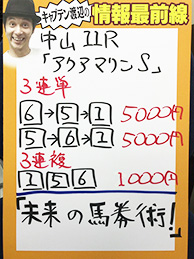 キャプテン渡辺の
情報最前線
中山11R
「アクアマリンS」
3連単
6→5→1 5000円
5→6→1 5000円
3連複
1 5 6 1000円
「未来の馬券術!」